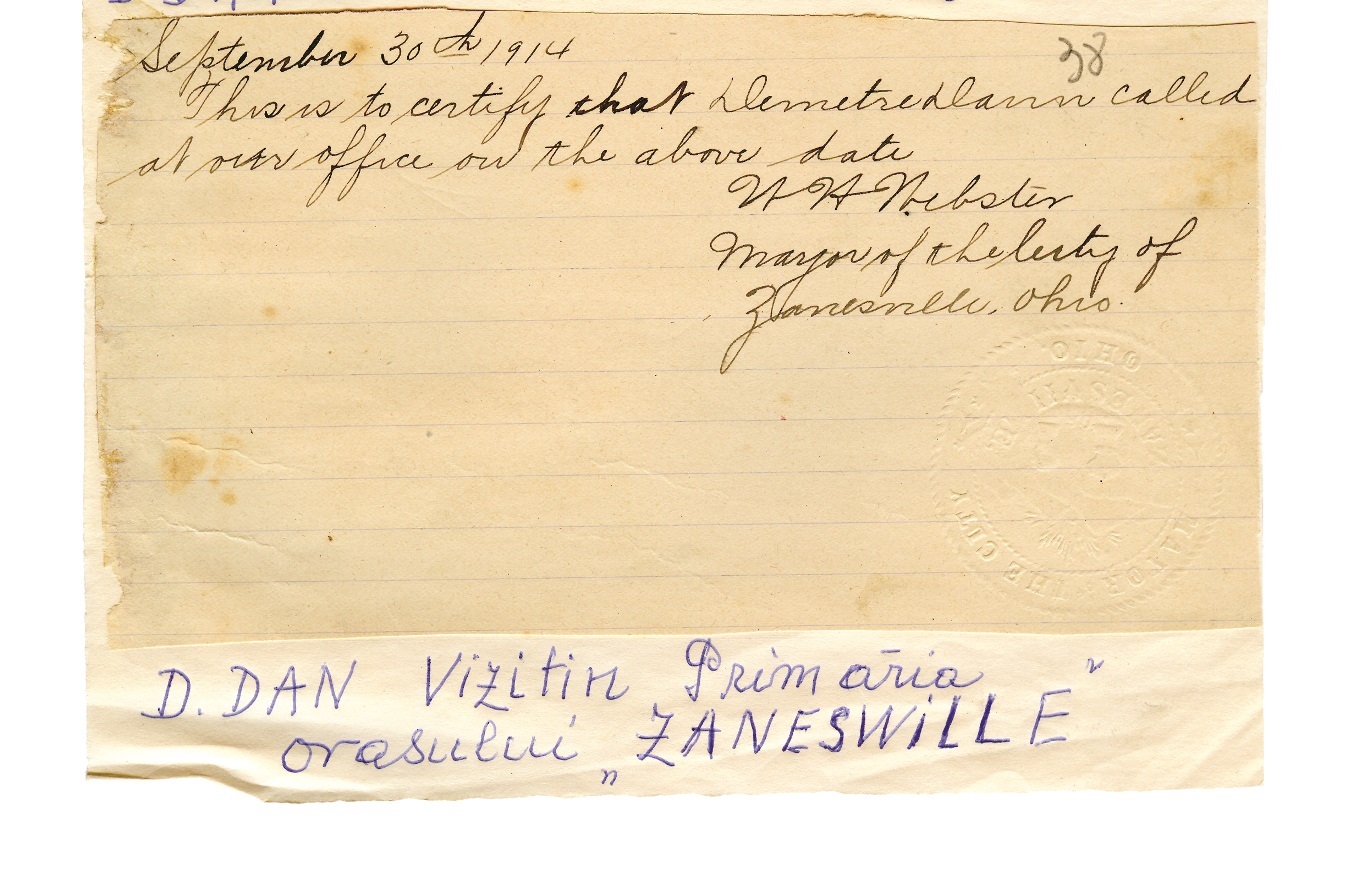 September 30th 1914
38
This is to certify that Demetre Dann called
at our office on the above date
W H Webster
Mayor of the City of
Zanesville, Ohio.
OHIO
MAYOR THE CITY
D. DAN Vizitin Primăria
orasului „ZANESWiLLE"